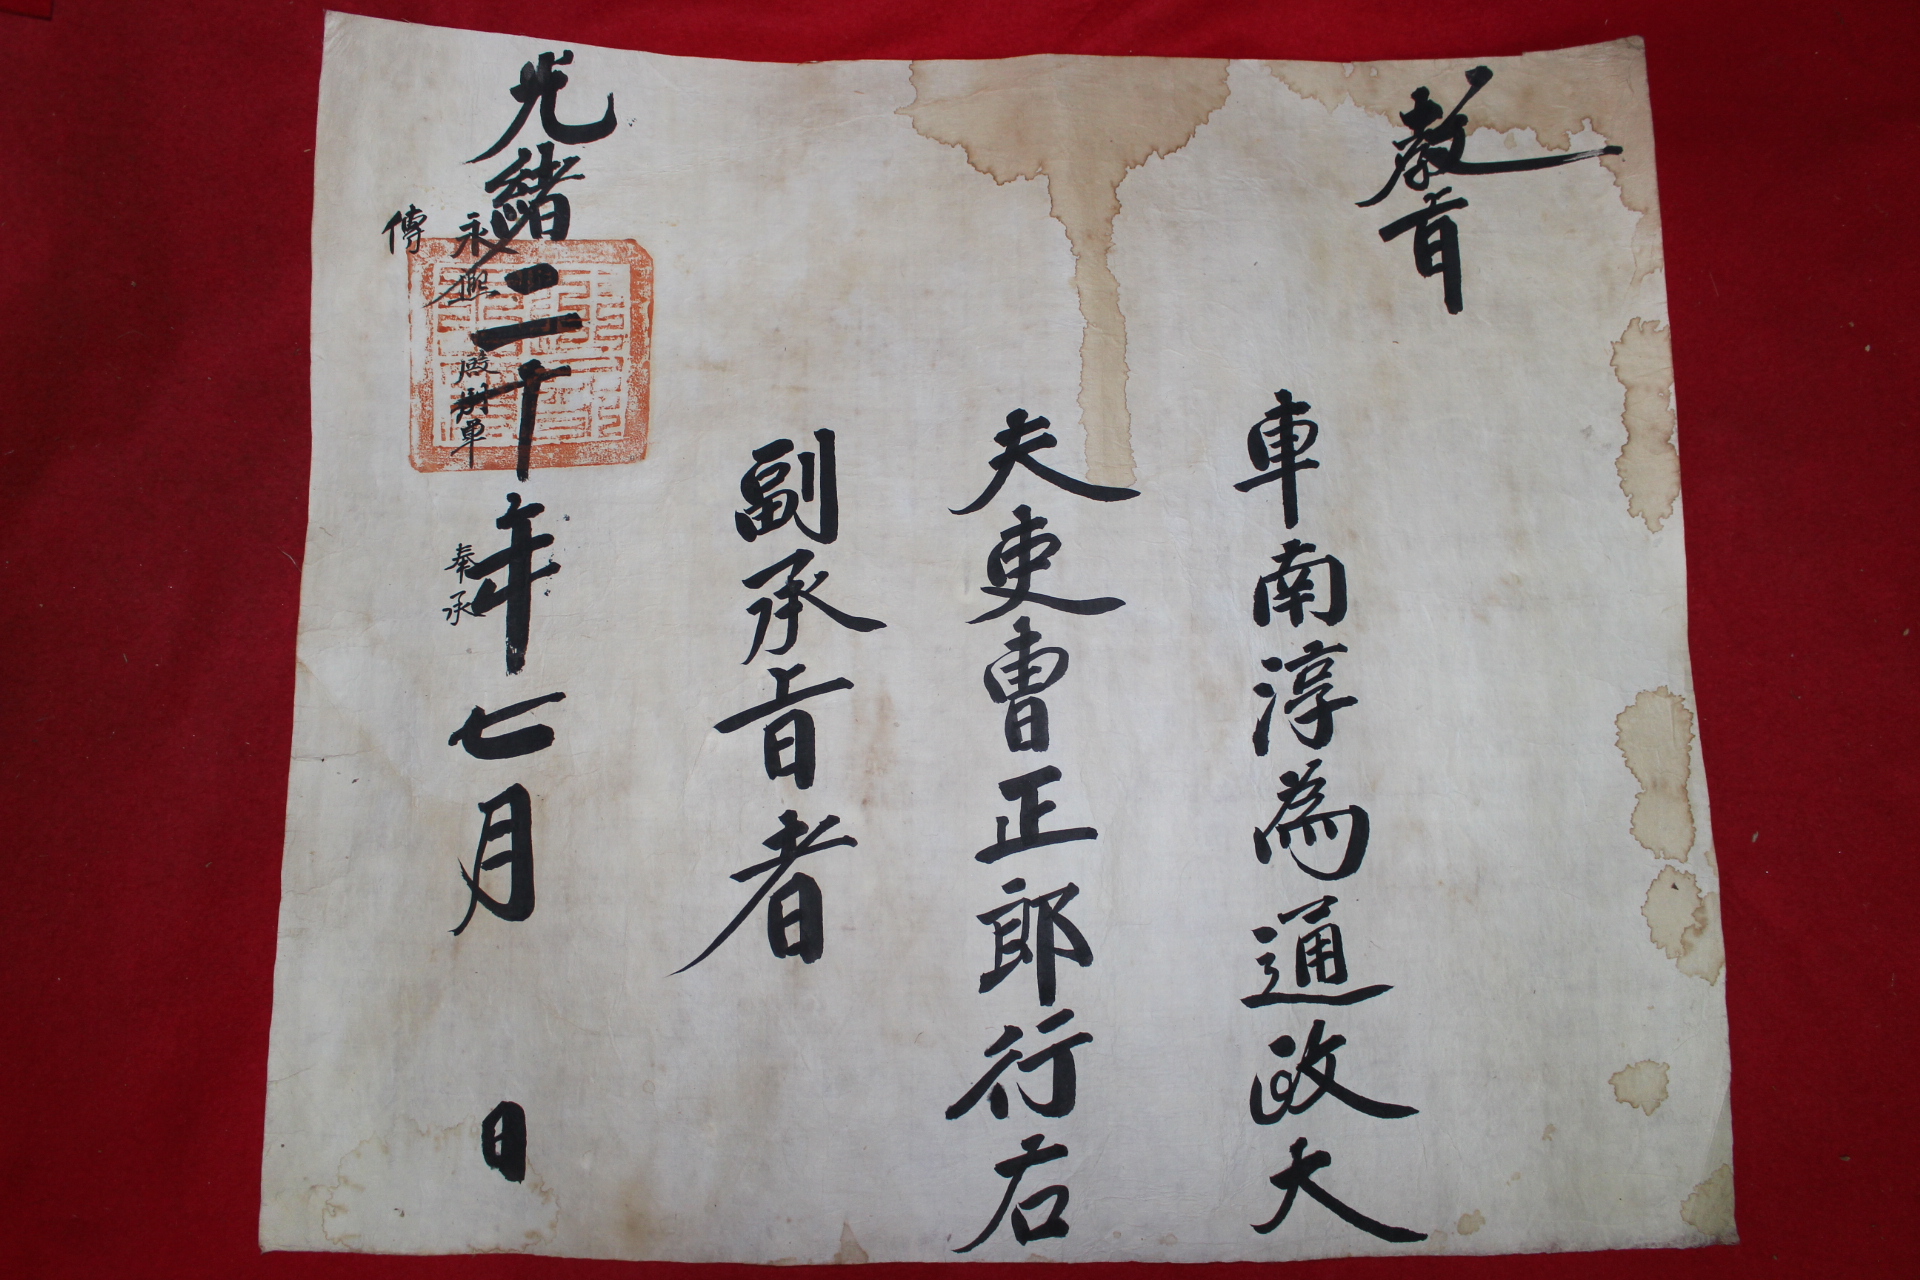 教旨
車南淳為通政大
夫吏曹正郎行右
副承旨者
光緒二十年七月 日
永興殿別單
奉承
傳